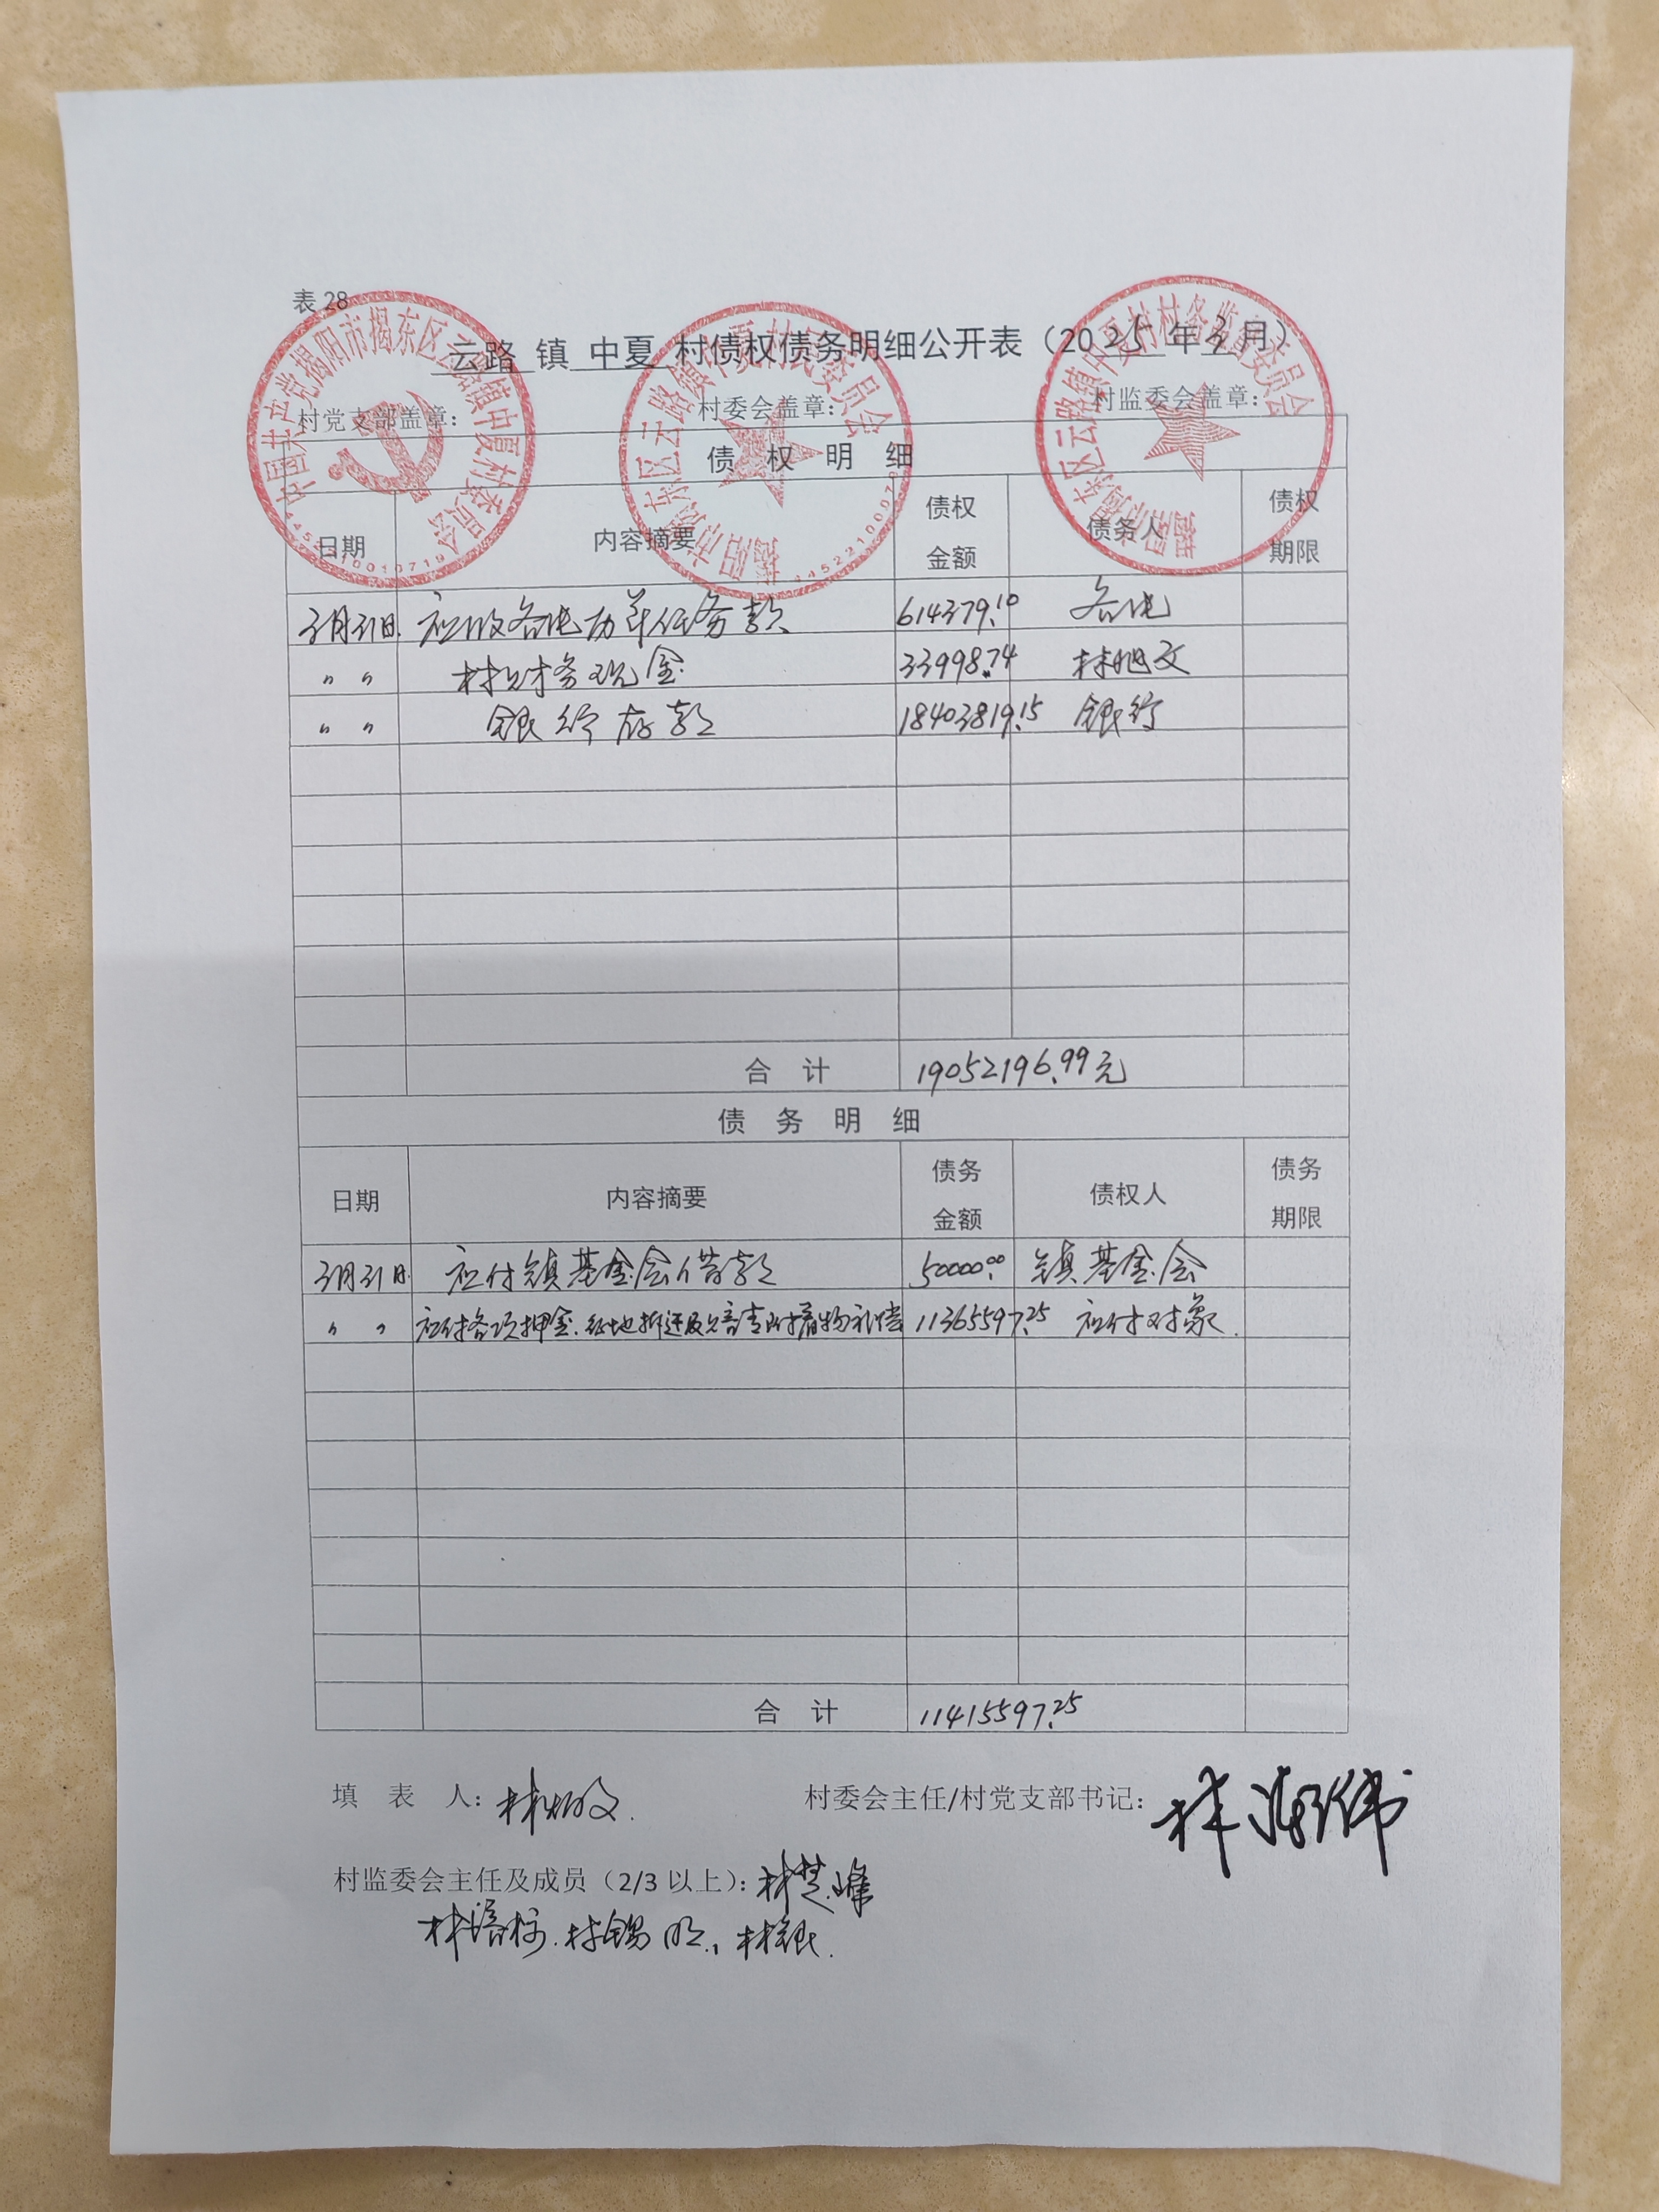 表 28
云路 镇 中夏 村债权债务明细公开表（2025 年3月）
村党支部盖章： 村委会盖章： 村监委会盖章：
中国共产党揭阳市揭东区云路镇中夏村委员会
揭阳市揭东区云路镇中夏村民委员会
揭阳市揭东区云路镇中夏村村务监督委员会
债 权 明 细
日期 内容摘要 债权金额 债务人 债权期限
3月31日 应收各电历年任务款 614379.10 各电
〃 〃 村财务现金 33998.74 林旭文
〃 〃 银行存款 18403819.15 银行
合 计 19052196.99元
债 务 明 细
日期 内容摘要 债务金额 债权人 债务期限
3月31日 应付镇基金会借款 50000.00 镇基金会
〃 〃 应付各项押金.征地拆迁及青附着物补偿 11365597.25 应付对象.
合 计 11415597.25
填 表 人：林 文. 村委会主任/村党支部书记：林 伟
村监委会主任及成员（2/3 以上）：林楚峰
林 . 林锡 . 林银.